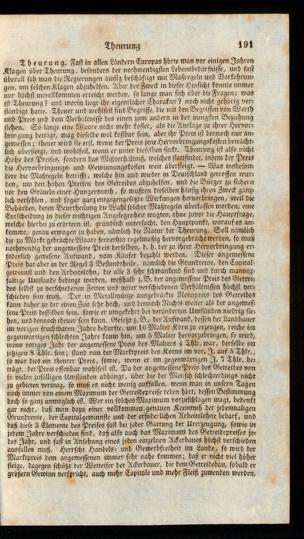 Theurung
191
Theurung. Fast in allen Ländern Europas hörte man vor einigen Jahren
Klagen über Theurung, besonders der nothwendigsten Lebensbedürfnisse, und fast
überall sah man die Regierungen ämsig beschäftigt mit Maßregeln und Vorkehrun-
gen, um solchen Klagen abzuhelfen. Aber der Zweck in dieser Hinsicht konnte immer
nur höchst unvollkommen erreicht werden, so lange man sich über die Fragen: was
ist Theurung? und worin liegt ihr eigentlicher Charakter? noch nicht gehörig ver-
ständigt hatte. Theuer und wohlfeil sind Begriffe, die mit den Begriffen von Werth
und Preis und dem Verhältniß des einen zum andern in der innigsten Beziehung
stehen. So lange eine Waare nicht mehr kostet, als die Auslage zu ihrer Hervor-
bringung beträgt, mag dieselbe noch so kostbar sein, aber ihr Preis ist dennoch nur an-
gemessen; theuer wird sie erst, wenn der Preis jene Hervorbringungskosten beträcht-
lich übersteigt, und wohlfeil, wenn er unter dieselben sinkt. Theurung ist also nicht
Höhe des Preises, sondern das Mißverhältniß, welches stattfindet, indem der Preis
die Hervorbringungs- und Gewinnungskosten weit übersteigt. — Was insbeson-
dere die Maßregeln betrifft, welche hin und wieder in Deutschland getroffen wur-
den, um den hohen Preisen des Getreides abzuhelfen, und die Bürger zu sichern
vor den Gräueln einer Hungersnoth, so mußten dieselben häufig ihren Zweck gänz-
lich verfehlen, und sogar ganz entgegengesetzte Wirkungen hervorbringen, weil die
Behörden, deren Beurtheilung die Wahl solcher Maßregeln überlassen worden, zur
Entscheidung in dieser wichtigen Angelegenheit wogten, ohne zuvor die Hauptfrage,
welche hierbei zu erörtern ist, gründlich untersucht, den Hauptpunkt, worauf es an-
kommt, genau erwogen zu haben, nämlich die Natur der Theurung. Soll nämlich
die zu Markt gebrachte Waare fernerhin regelmäßig hervorgebracht werden, so muß
nothwendig der angemessene Preis derselben, d. h. der zu ihrer Hervorbringung er-
forderlich gewesene Aufwand, vom Käufer bezahlt werden. Dieser angemessene
Preis hat aber in der Regel 3 Bestandtheile, nämlich die Grundrente, den Capital-
gewinnst und den Arbeitslohn, die alle 3 sehr schwankend sind und durch mannig-
faltige Umstände bedingt werden, weshalb z. B. der angemessene Preis des Getrei-
des selbst zu verschiedenen Zeiten und unter verschiedenen Verhältnissen höchst ver-
schieden sein muß. Der in Metallmünze ausgedrückte Nennpreis des Getreides
kann daher zu der einen Zeit sehr hoch, und dennoch Nichts weiter als der angemes-
sene Preis desselben sein, sowie er umgekehrt bei veränderten Umständen niedrig ste-
hen, und dennoch theuer sein kann. Gesetzt z. B., der Aufwand, dessen der Landbauer
im vorigen fruchtbaren Jahre bedurfte, um 10 Malter Korn zu erzeugen, reiche im
gegenwärtigen schlechten Jahre kaum hin, um 5 Malter hervorzubringen, so wird,
wenn voriges Jahr der angemessene Preis des Malters 4 Thlr. war, derselbe im
jetzigen 8 Thlr. sein; stand nun der Marktpreis des Korns im vor. J. auf 5 Thlr.,
so war dies ein theurer Preis, sowie, wenn er im gegenwärtigen J. 7 Thlr. be-
trägt, der Preis offenbar wohlfeil ist. Da der angemessene Preis des Getreides von
so vielen zufälligen Umständen abhängt, über die der Mensch schlechterdings nicht
zu gebieten vermag, so muß es nicht wenig auffallen, wenn man in unsern Tagen
noch immer von einem Maximum der Getreidepreise reden hört, dessen Bestimmung
doch so ganz unmöglich ist. Wer ein solches Maximum vorzuschlagen wagt, bedenkt
gar nicht, daß man dazu einer vollkommen genauen Kenntniß der jedesmaligen
Grundrente, der Capitalgewinste und der erforderlichen Arbeitslöhne bedarf, und
daß diese 3 Elemente des Preises fast bei jeder Gattung der Urerzeugung, sowie in
jedem Jahre verschieden sind, daß also auch das Maximum des Getreidepreises je-
des Jahr, und fast in Ansehung eines jeden einzelnen Ackerbaues höchst verschieden
ausfallen muß. Herrscht Handels- und Gewerbfreiheit im Lande, so wird der
Marktpreis dem angemessenen immer sehr nahe kommen; daß er nicht viel höher
steige, dagegen schützt der Wetteifer der Ackerbauer, die dem Getreidebau, sobald er
größern Gewinn verspricht, auch mehr Capitale und mehr Fleiß zuwenden werden,